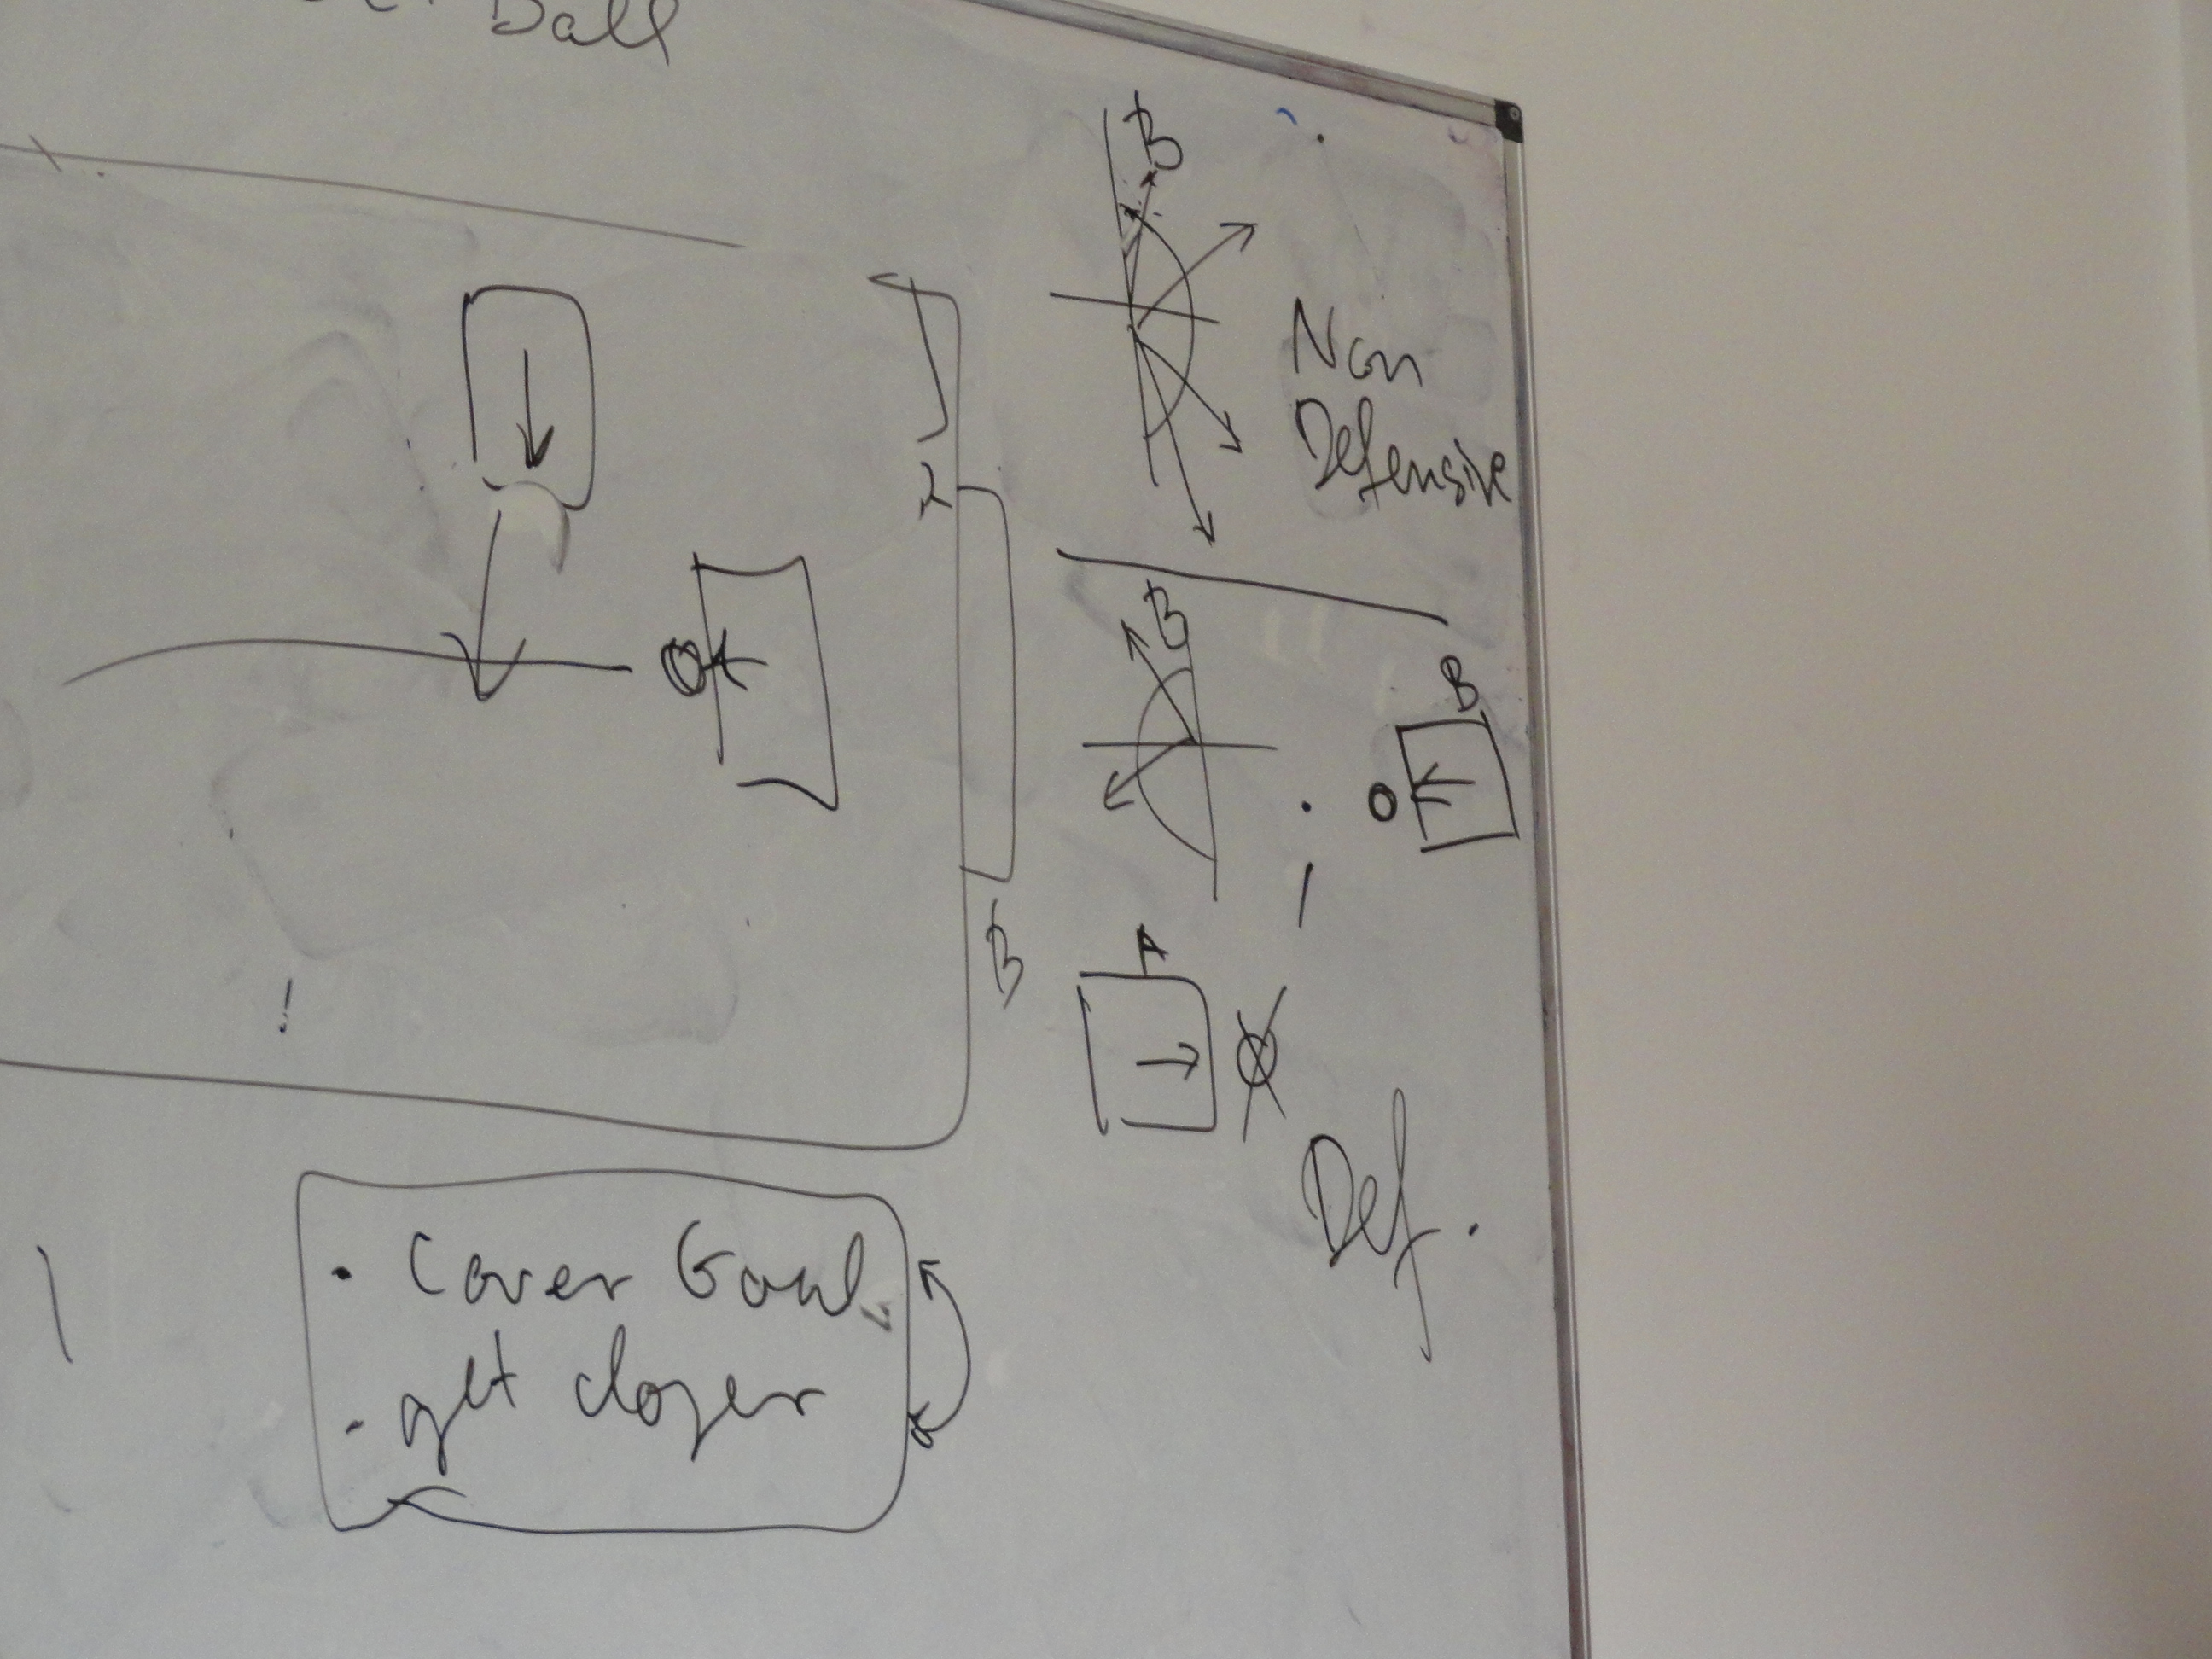 Ball
B
Non
Defensive
2
B
B
B
A
Def.
• Cover Goal
- get closer